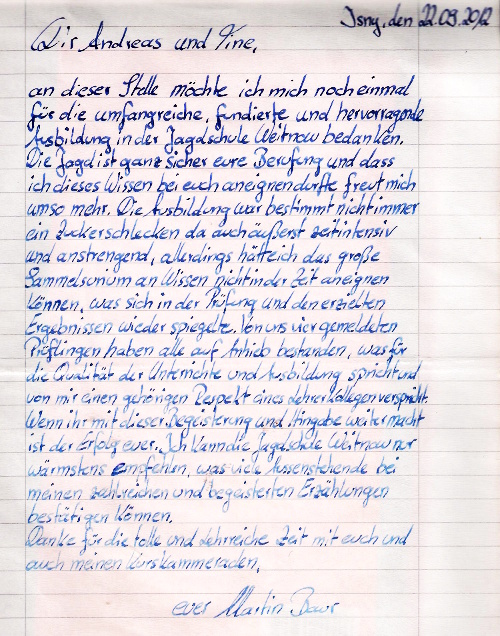 Isny, den 22.09.2012
Dir Andreas und Tine,
an dieser Stelle möchte ich mich noch einmal
für die umfangreiche, fundierte und hervorragende
Ausbildung in der Jagdschule Weitnow bedanken.
Die Jagd ist ganz sicher eure Berufung und dass
ich dieses Wissen bei euch aneignen durfte freut mich
umso mehr. Die Ausbildung war bestimmt nicht immer
ein Zuckerschlecken da auch äußerst zeitintensiv
und anstrengend, allerdings hätte ich das große
Sammelsurium an Wissen nicht in der Zeit aneignen
können, was sich in der Prüfung und den erzielten
Ergebnissen wieder spiegelte. Von uns vier gemeldeten
Prüflingen haben alle auf Anhieb bestanden, was für
die Qualität der Unterrichte und Ausbildung spricht und
von mir einen gehörigen Respekt eines Lehrerkollegen verspricht.
Wenn ihr mit dieser Begeisterung und Hingabe weiter macht
ist der Erfolg euer. Ich kann die Jagdschule Weitnow nur
wärmstens empfehlen, was viele Aussenstehende bei
meinen zahlreichen und begeisterten Erzählungen
bestätigen können.
Danke für die tolle und lehrreiche Zeit mit euch und
auch meinen Kurskammeraden,
euer Martin Baur